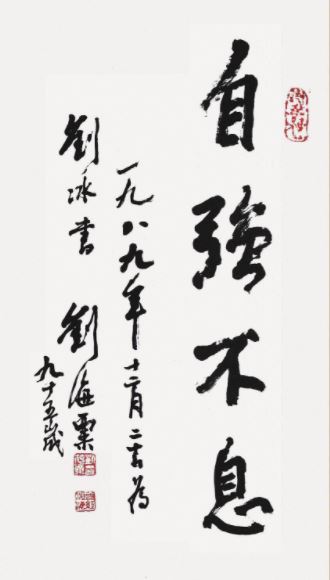 自強不息
一九八九年十二月二
為
劉冰書 劉海粟
九十五歲